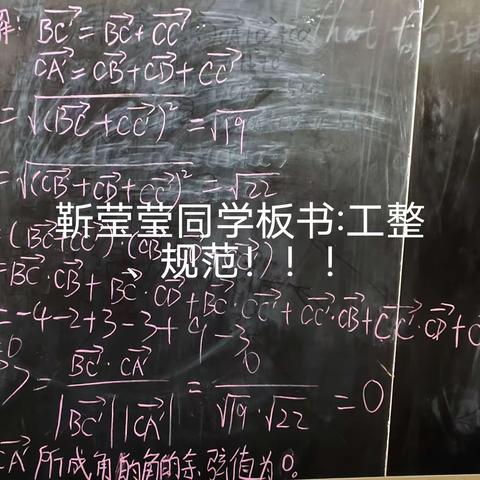 解: BC' = BC + CC'
CA' = CB + CD + CC'
= √(BC + CC')² = √19
= √(CB + CD + CC')² = √22
靳莹莹同学板书:工整
规范！！！
= BC · CB + BC · CD + BC · CC' + CC' · CB + CC' · CD +
= -4-2+3-3+ 9-3
> = BC' · CA' / |BC'| |CA'| = 0 / √19 · √22 = 0
CA' 所成角的角的余弦值为0。